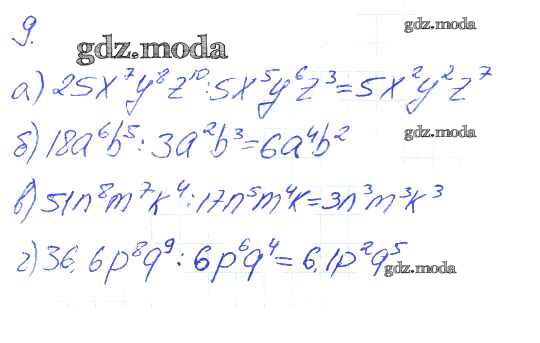 9.
gdz.moda
gdz.moda
а) 25x⁷y⁸z¹⁰:5x⁵y⁶z³=5x²y²z⁷
б) 18a⁶b⁵:3a²b³=6a⁴b²
gdz.moda
в) 51n⁸m⁷k⁴:17n⁵m⁴k=3n³m³k³
г) 36,6p⁸q⁹:6p⁶q⁴=6,1p²q⁵
gdz.moda